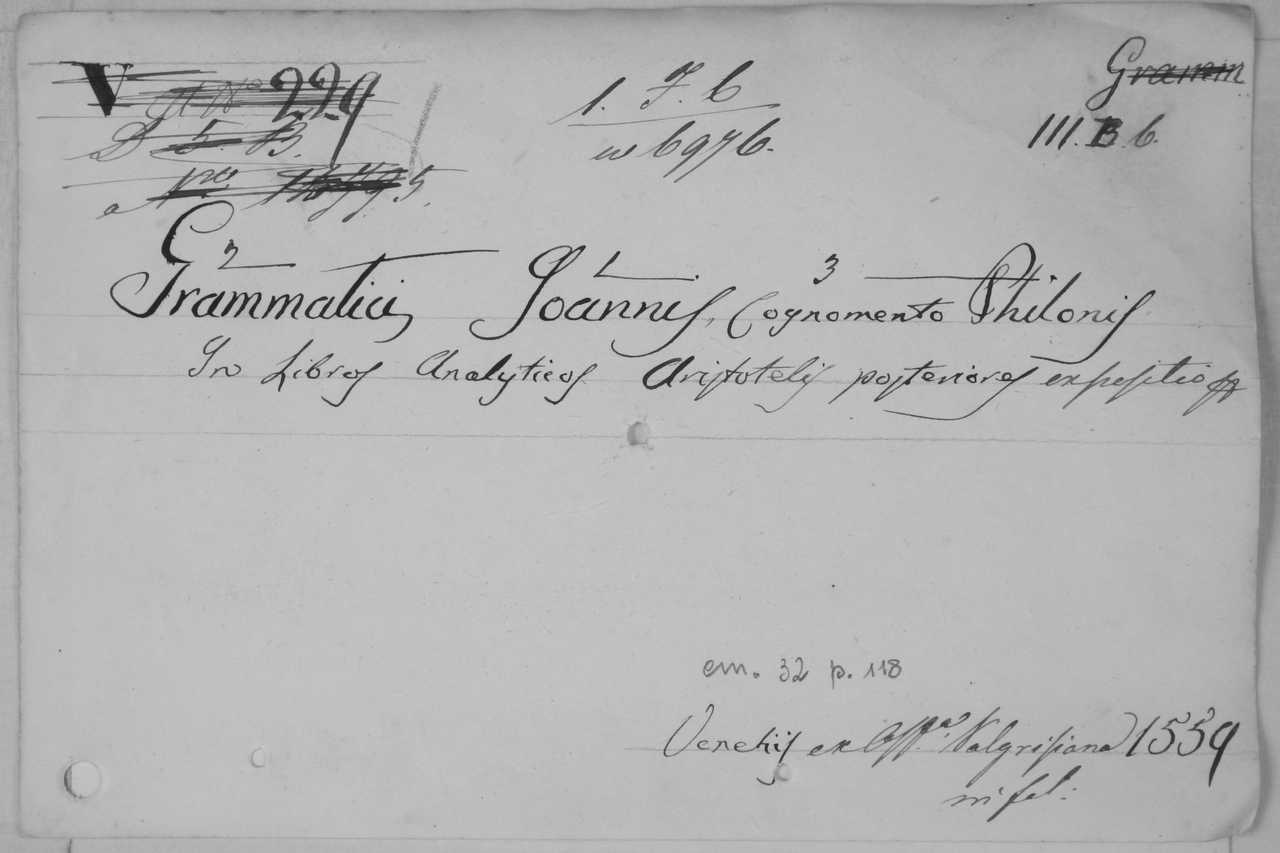 V 229
1. F. b
Gramm
B.
w 6976.
III. B. b.
2 1 3
Grammatici, Joannis, Cognomento Philonis
In Libros Analyticos Aristotelis posteriores expositio
em. 32 p. 118
Venetijs ex Offa. Valgrisiana 1559
in fol: